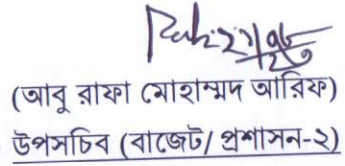 (আবু রাফা মোহাম্মদ আরিফ)
উপসচিব (বাজেট/ প্রশাসন-২)